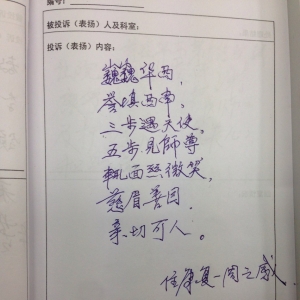 编号:
被投诉(表扬)人及科室:
投诉(表扬)内容:
巍巍华西,
誉填西南。
三步遇天使,
五步见師尊
軏面慈微笑,
慈眉善目.
亲切可人。
住康复一周之感